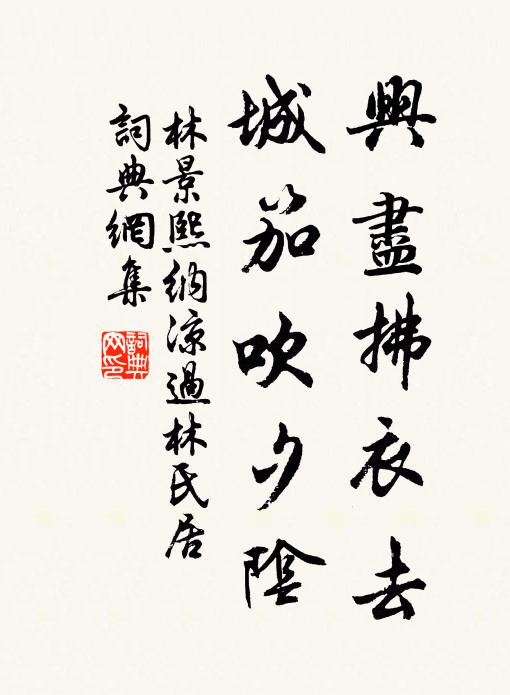 興盡拂衣去
城笳吹夕陰
林景熙納涼過林氏居
詞典網集
詞典網印